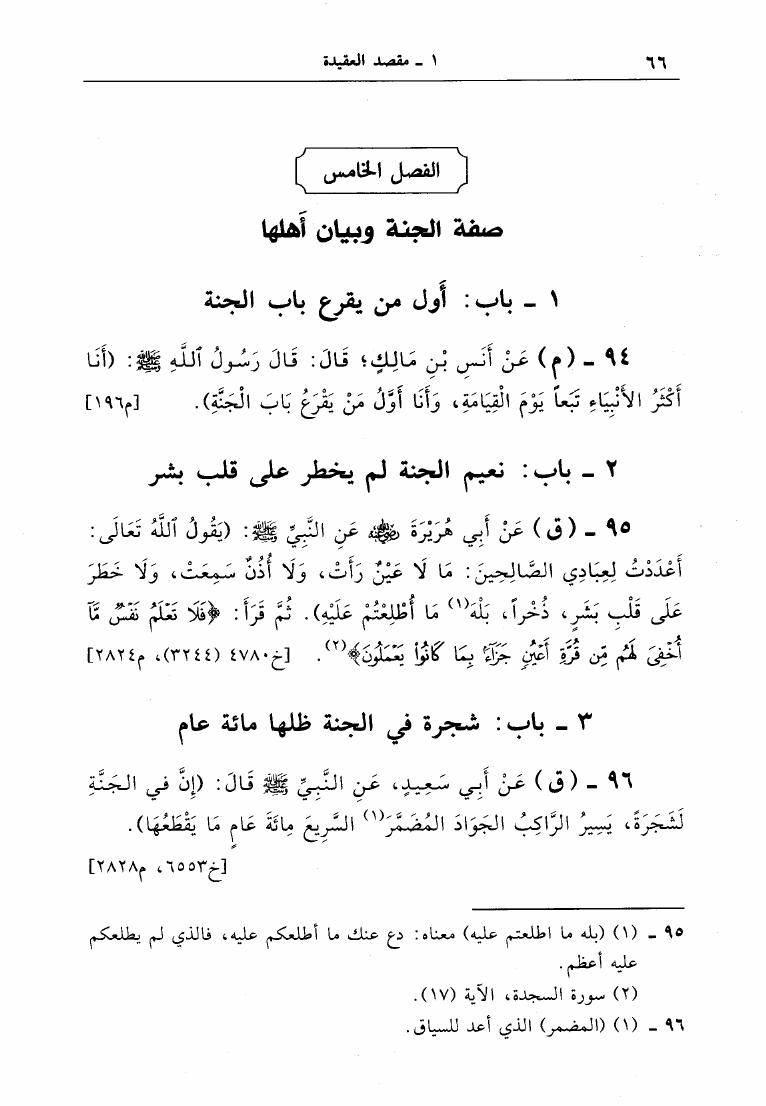 ٦٦ ١ ـ مقصد العقيدة
الفصل الخامس
صفة الجنة وبيان أَهلها
١ ـ باب: أَول من يقرع باب الجنة
٩٤ ـ (م) عَنْ أَنَسِ بْنِ مَالِكٍ؛ قَالَ: قَالَ رَسُولُ ٱللَّهِ ﷺ: (أَنَا
أَكْثَرُ الأَنْبِيَاءِ تَبَعاً يَوْمَ الْقِيَامَةِ، وَأَنَا أَوَّلُ مَنْ يَقْرَعُ بَابَ الْجَنَّةِ). [م١٩٦]
٢ ـ باب: نعيم الجنة لم يخطر على قلب بشر
٩٥ ـ (ق) عَنْ أَبِي هُرَيْرَةَ رضي الله عنه عَنِ النَّبِيِّ ﷺ: (يَقُولُ ٱللَّهُ تَعَالَى:
أَعْدَدْتُ لِعِبَادِي الصَّالِحِينَ: مَا لَا عَيْنٌ رَأَتْ، وَلَا أُذُنٌ سَمِعَتْ، وَلَا خَطَرَ
عَلَى قَلْبِ بَشَرٍ، ذُخْراً، بَلْهَ(١) مَا أُطْلِعْتُمْ عَلَيْهِ). ثُمَّ قَرَأَ: ﴿فَلَا تَعْلَمُ نَفْسٌ مَّآ
أُخْفِيَ لَهُم مِّن قُرَّةِ أَعْيُنٍ جَزَآءًۢ بِمَا كَانُواْ يَعْمَلُونَ﴾(٢). [خ٤٧٨٠ (٣٢٤٤)، م٢٨٢٤]
٣ ـ باب: شجرة في الجنة ظلها مائة عام
٩٦ ـ (ق) عَنْ أَبِي سَعِيدٍ، عَنِ النَّبِيِّ ﷺ قَالَ: (إِنَّ في الجَنَّةِ
لَشَجَرَةً، يَسِيرُ الرَّاكِبُ الجَوَادَ المُضَمَّرَ(١) السَّرِيعَ مِائَةَ عَامٍ مَا يَقْطَعُهَا).
[خ٦٥٥٣، م٢٨٢٨]
٩٥ ـ (١) (بله ما اطلعتم عليه) معناه: دع عنك ما أطلعكم عليه، فالذي لم يطلعكم
عليه أعظم.
(٢) سورة السجدة، الآية (١٧).
٩٦ ـ (١) (المضمر) الذي أعد للسباق.